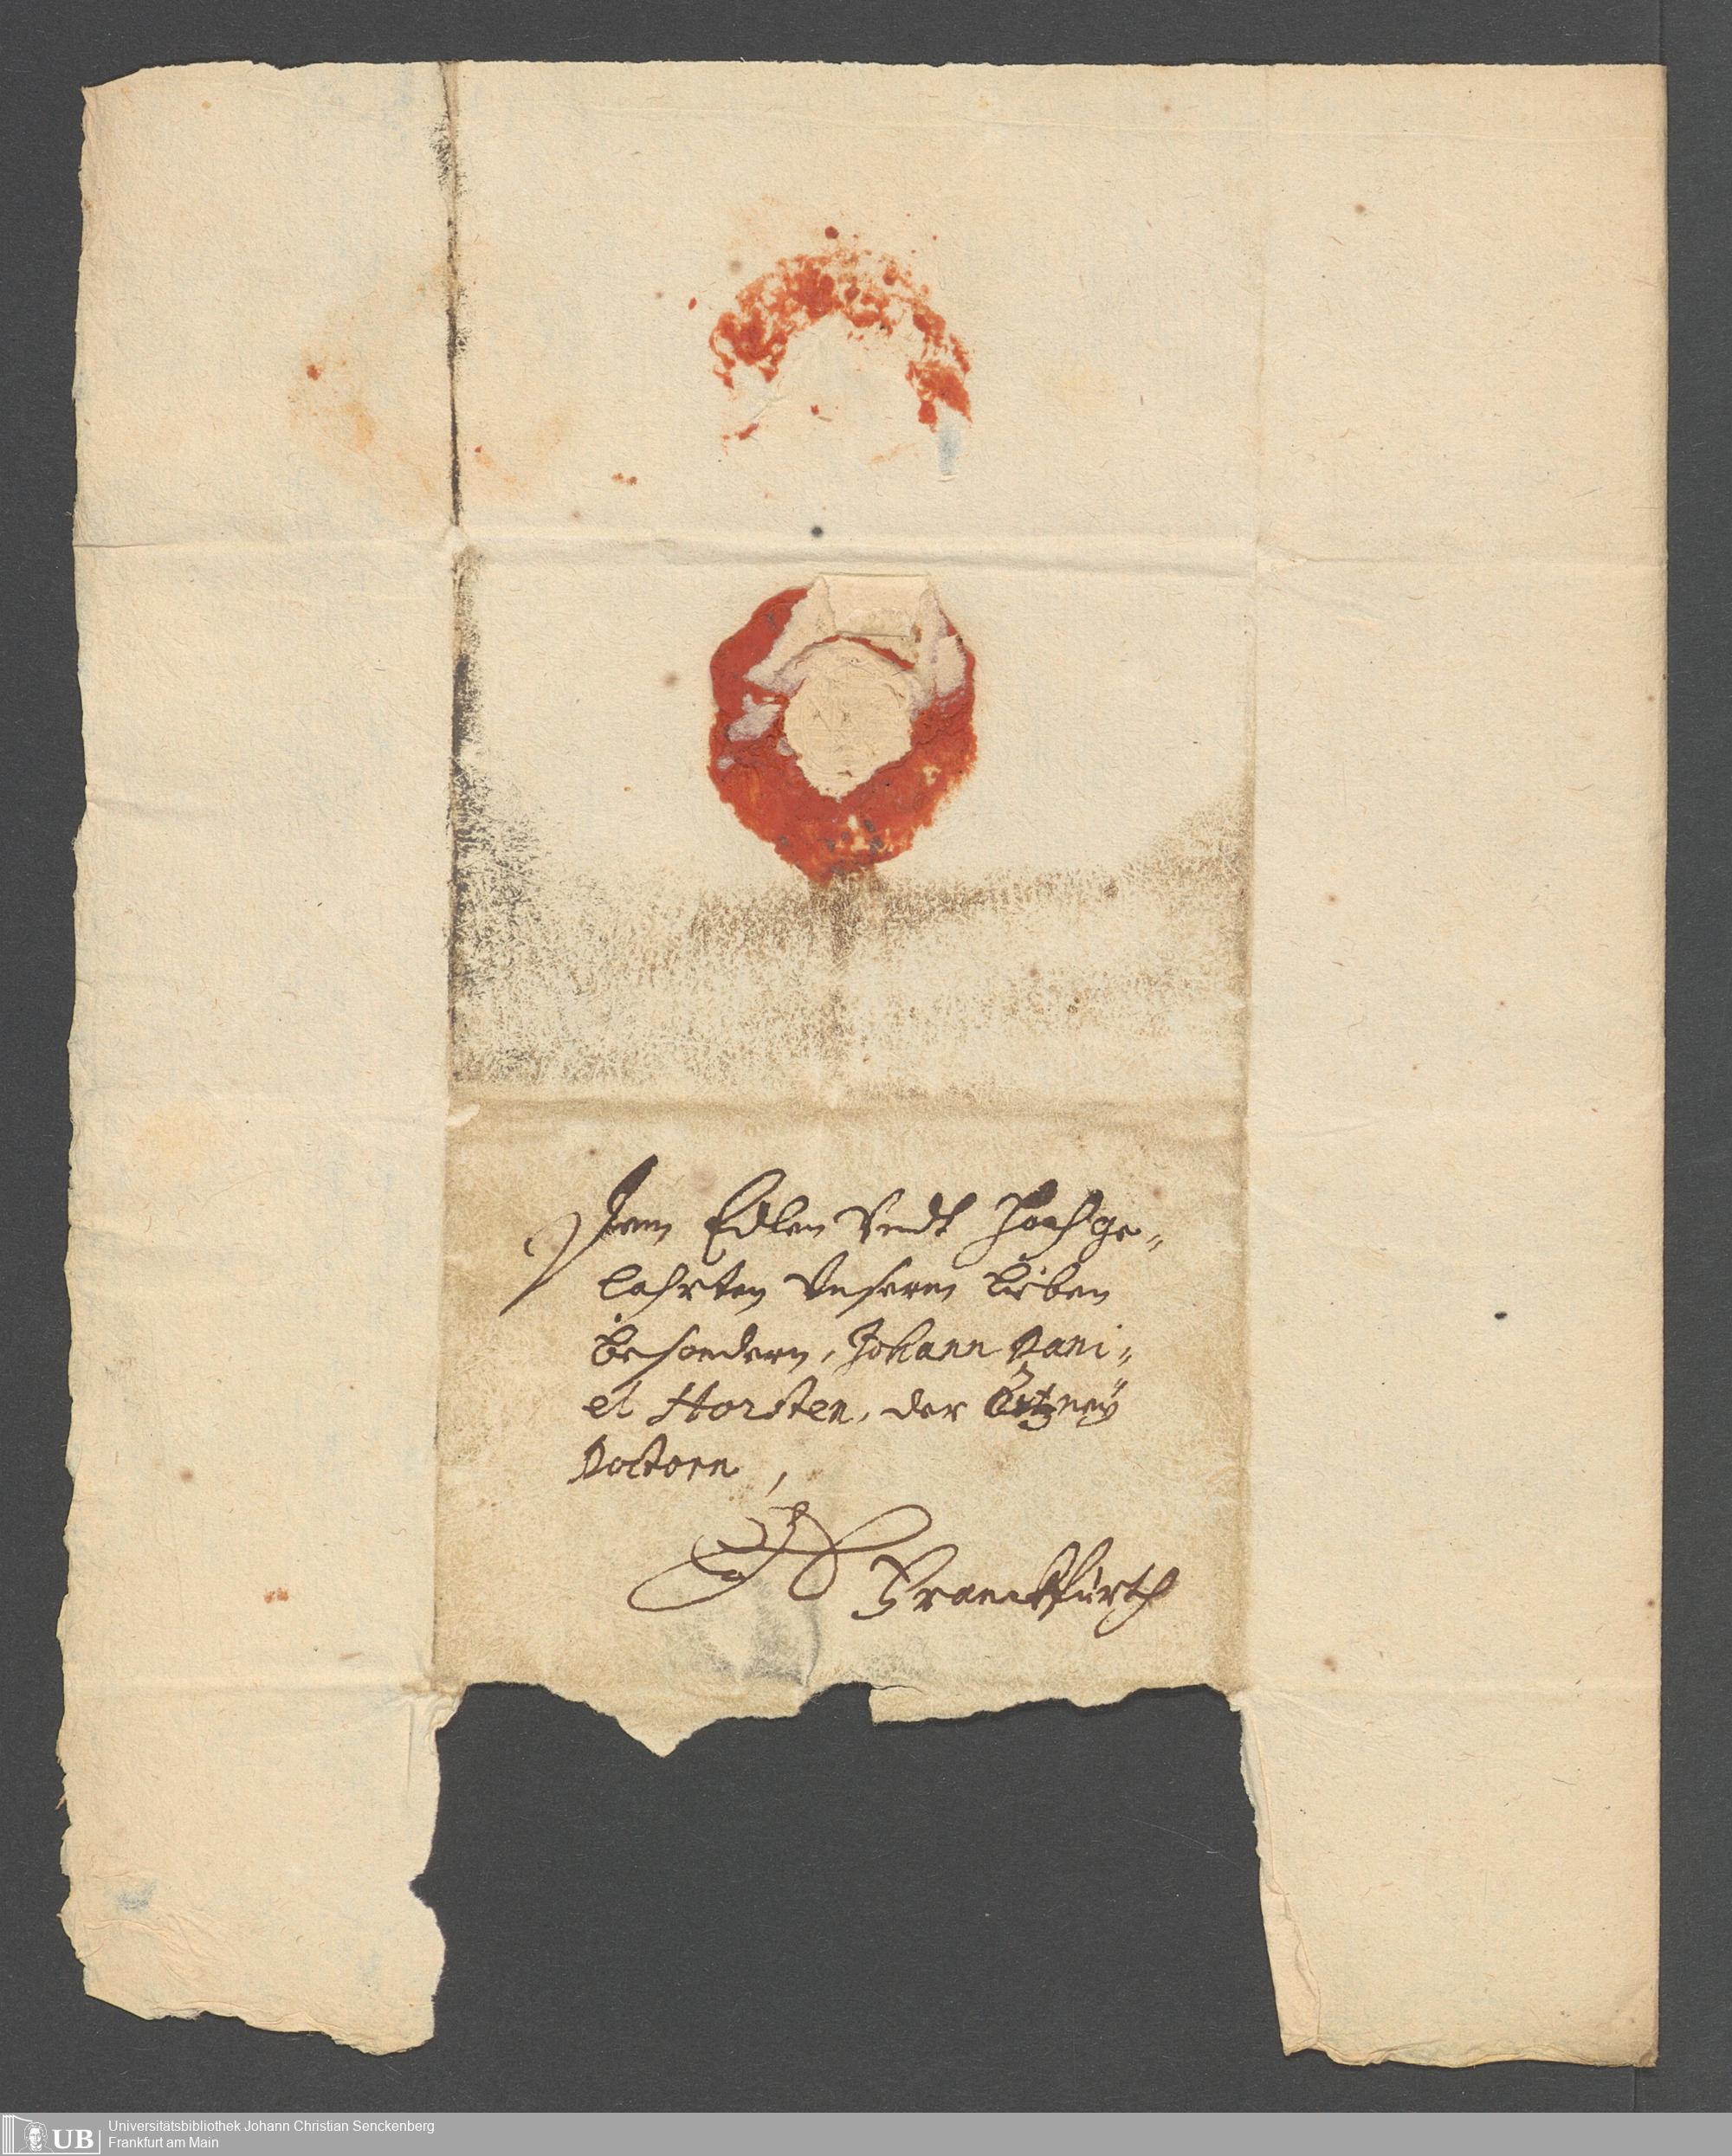 Dem Edlen Vndt Hochge-
lahrten Vnserm Lieben
besondern, Johann Dani-
el Horsten, der Artzneÿ
Doctorn,
Franckfurth
UB
Universitätsbibliothek Johann Christian Senckenberg
Frankfurt am Main